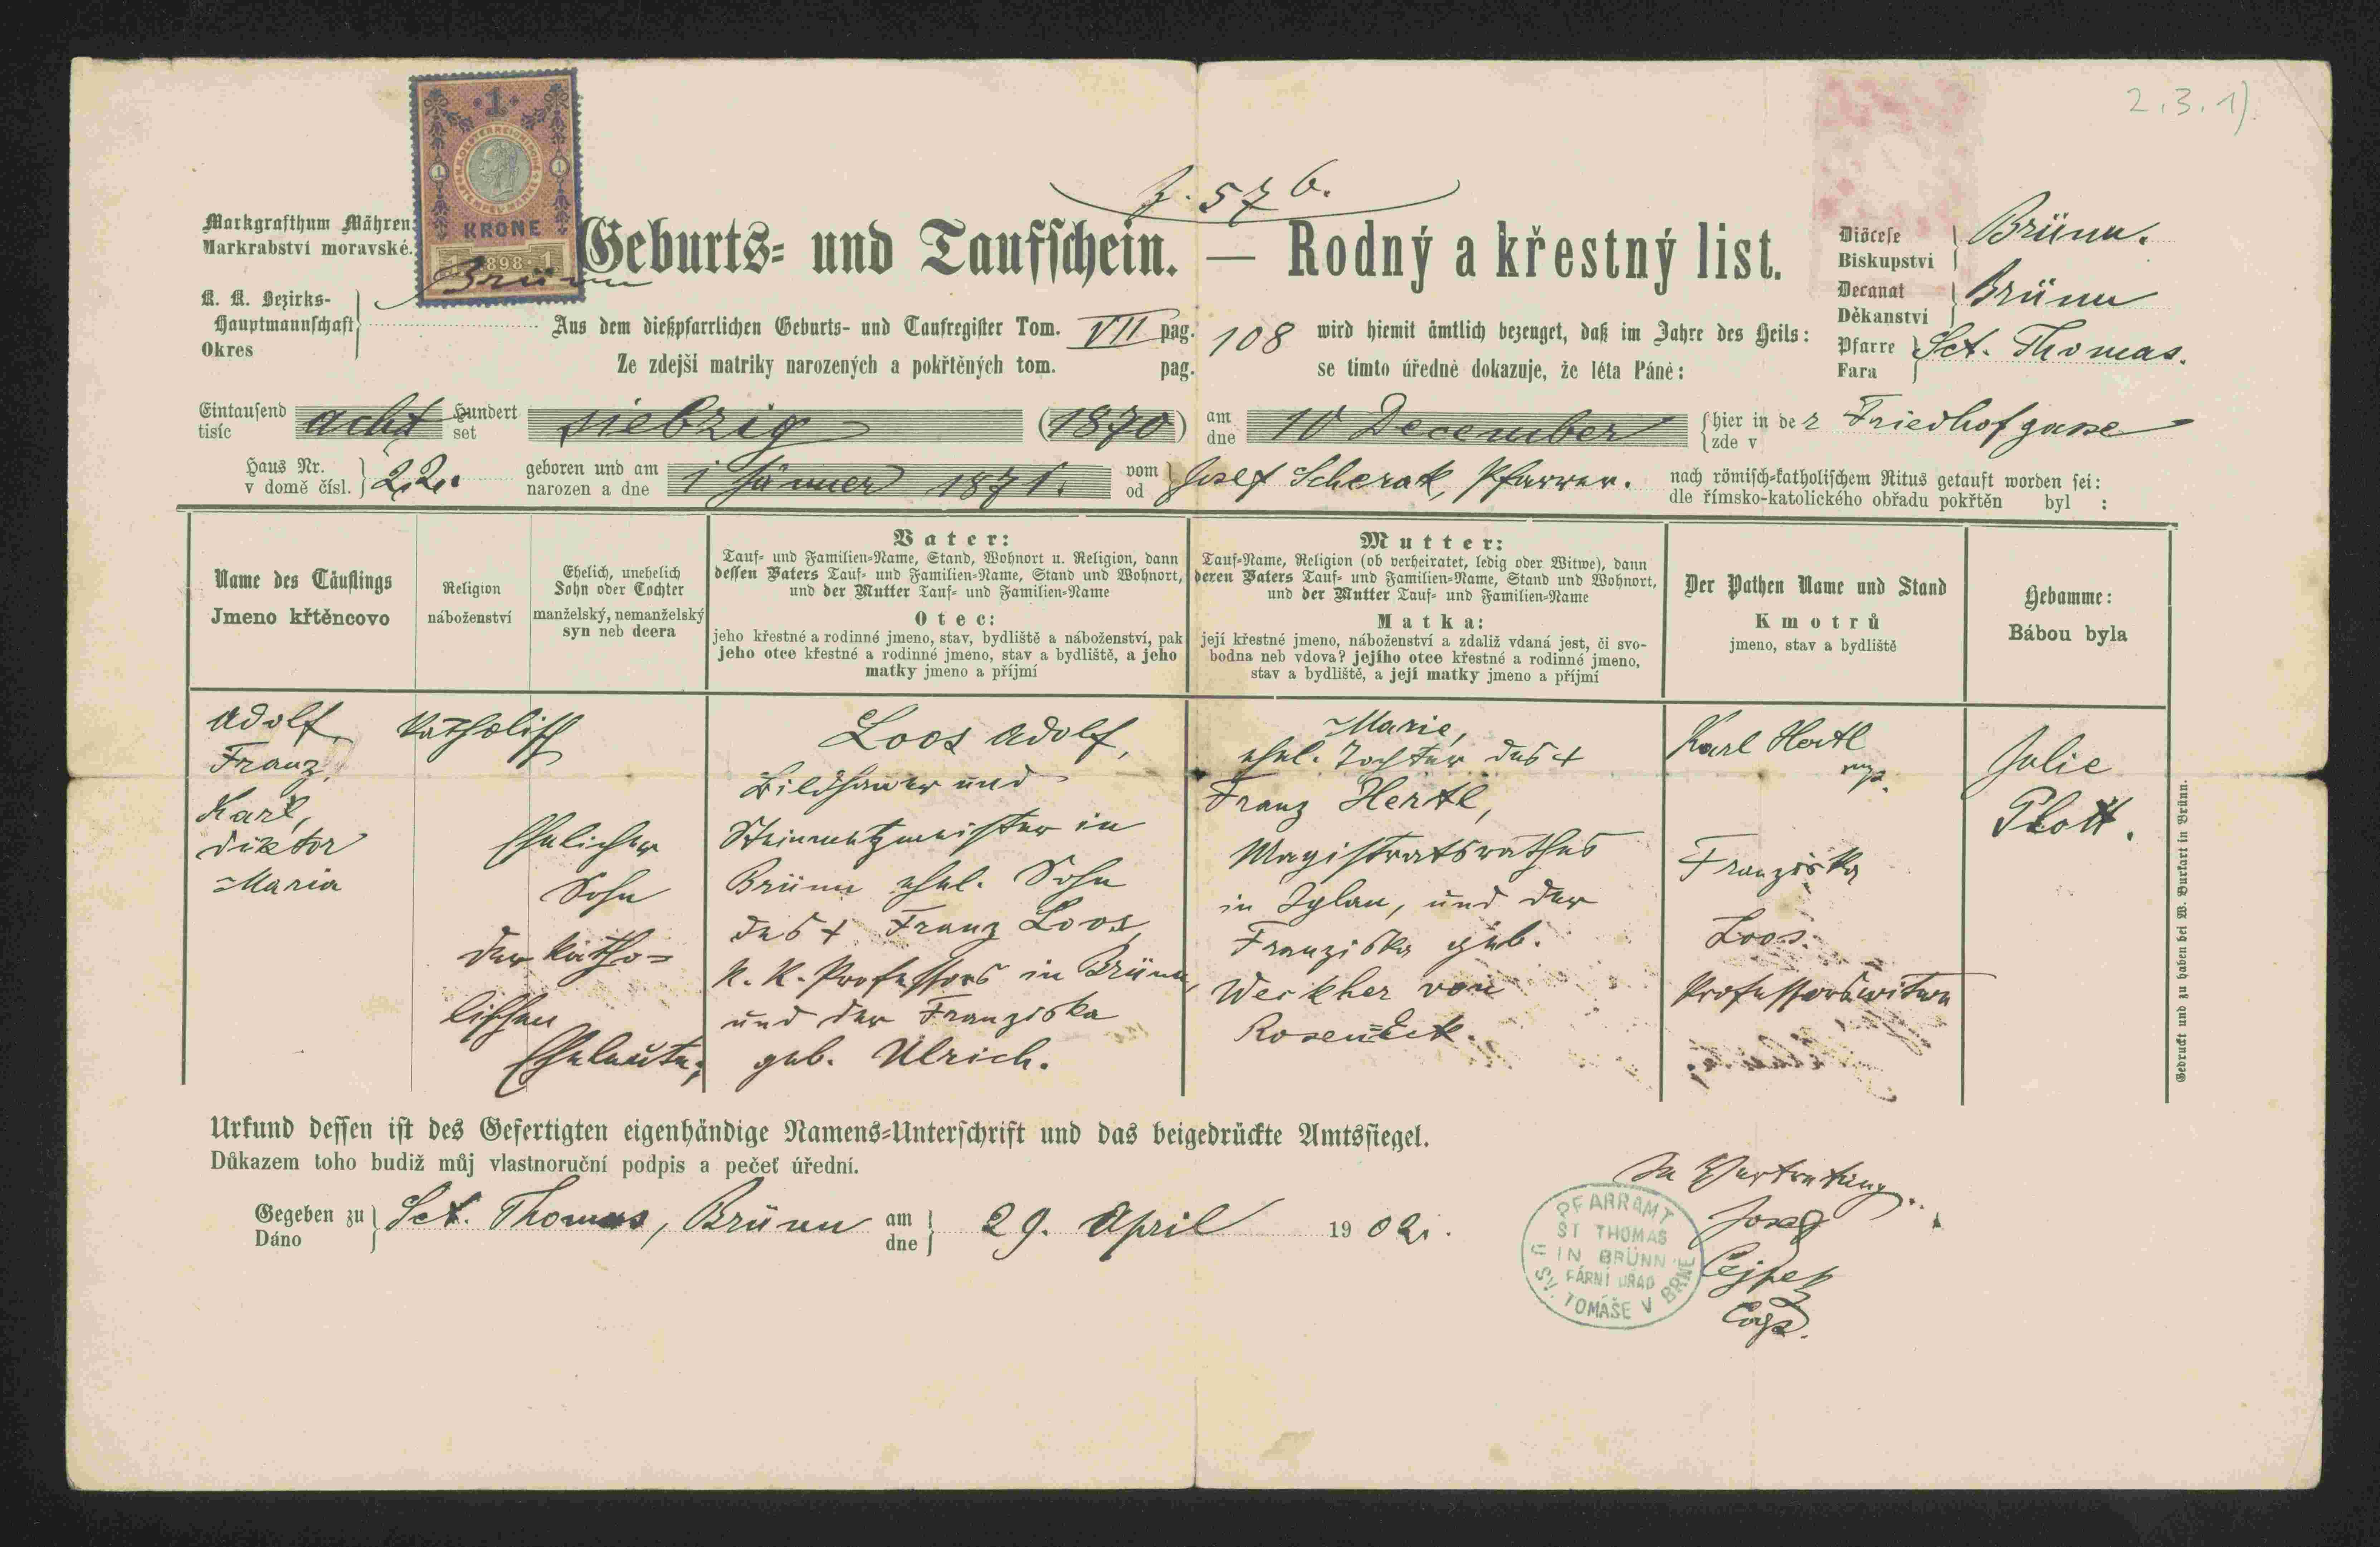 2.3.1)
Z. 576.
1
K.K. OESTERREICHISCHE STEMPEL MARKE
1 1
KRONE
1 1898 1
Markgrafthum Mähren
Markrabství moravské.
Geburts- und Taufschein. — Rodný a křestný list.
Diöcese
Biskupství
Brünn.
Decanat
Děkanství
Brünn
Pfarre
Fara
Sct. Thomas.
K. K. Bezirks-
Hauptmannschaft
Okres
Brünn
Aus dem dießpfarrlichen Geburts- und Taufregister Tom. VII pag. 108 wird hiemit ämtlich bezeuget, daß im Jahre des Heils:
Ze zdejší matriky narozených a pokřtěných tom. pag. se tímto úředně dokazuje, že léta Páně:
Eintausend acht Hundert siebzig (1870) am 10 December hier in der Friedhofgasse
tisíc set dne zde v
Haus Nr. 22. geboren und am 1 Jänner 1871. vom Josef Scherak, Pfarrer. nach römisch-katholischem Ritus getauft worden sei:
v domě čísl. narozen a dne od dle římsko-katolického obřadu pokřtěn byl :
Name des Täuflings
Jmeno křtěncovo
Religion
náboženství
Ehelich, unehelich
Sohn oder Tochter
manželský, nemanželský
syn neb dcera
Vater:
Tauf- und Familien-Name, Stand, Wohnort u. Religion, dann
dessen Vaters Tauf- und Familien-Name, Stand und Wohnort,
und der Mutter Tauf- und Familien-Name
Otec:
jeho křestné a rodinné jmeno, stav, bydliště a náboženství, pak
jeho otce křestné a rodinné jmeno, stav a bydliště, a jeho
matky jmeno a příjmí
Mutter:
Tauf-Name, Religion (ob verheiratet, ledig oder Witwe), dann
deren Vaters Tauf- und Familien-Name, Stand und Wohnort,
und der Mutter Tauf- und Familien-Name
Matka:
její křestné jmeno, náboženství a zdaliž vdaná jest, či svo-
bodna neb vdova? jejího otce křestné a rodinné jmeno,
stav a bydliště, a její matky jmeno a příjmí
Der Pathen Name und Stand
Kmotrů
jmeno, stav a bydliště
Hebamme:
Bábou byla
Adolf
Franz,
Karl,
Viktor
Maria
katholisch
Ehelicher
Sohn
der katho-
lischen
Eheleute;
Loos Adolf,
Bildhauer und
Steinmetzmeister in
Brünn ehel. Sohn
des + Franz Loos,
k. k. Professors in Brünn,
und der Franziska
geb. Ulrich.
Marie,
ehel. Tochter des +
Franz Hertl,
Magistratsrathes
in Iglau, und der
Franziska geb.
Weikher von
Rosen=Eck.
Karl Hertl
mp.
Franziska
Loos
Professorswitwe
Julie
Plott.
Gedruckt und zu haben bei W. Burkart in Brünn.
Urkund dessen ist des Gefertigten eigenhändige Namens-Unterschrift und das beigedrückte Amtssiegel.
Důkazem toho budiž můj vlastnoruční podpis a pečeť úřední.
Gegeben zu Sct. Thomas, Brünn am 29. April 1902.
Dáno dne
In Vertretung:
Josef
Cejpek
Coop.
PFARRAMT
ST THOMAS
IN BRÜNN
FÁRNÍ ÚŘAD
U SV. TOMÁŠE V BRNĚ